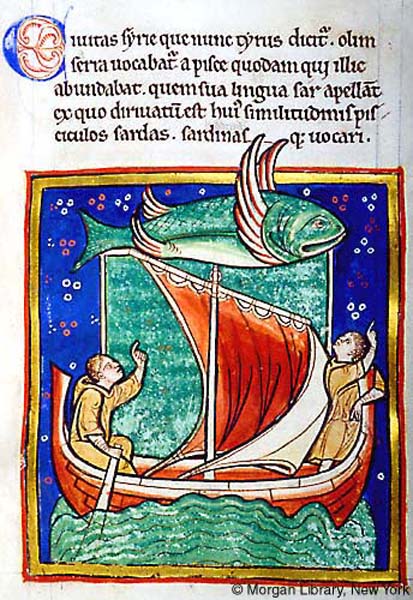 Ciuitas syrie que nunc tyrus dicit̃. olim
seria uocabat̃ a pisce quodam qui illic
abundabat. quem sua lingua sar apellãt
ex quo diriuatũ est hui᾽ similitudinis pis
ciculos sardas. sardinas q: uocari.
© Morgan Library, New York